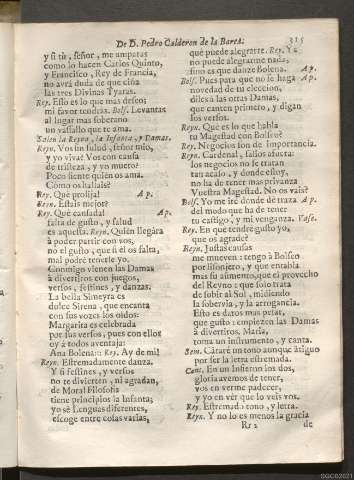 De D. Pedro Calderon de la Barca. 315
y si tù, señor, me amparas
como lo hacen Carlos Quinto,
y Francisco, Rey de Francia,
no avrá duda de que ciña
las tres Divinas Tyaras.
Rey. Esto es lo que mas deseo;
mi favor tendràs. Bolf. Levantas
al lugar mas soberano
un vassallo que te ama.
Salen la Reyna, la Infanta, y Damas.
Reyn. Vos sin salud, señor mio,
y yo viva? Vos con causa
de tristeza, y yo no muero?
Poco siente quien os ama.
Còmo os hallais?
Rey. Què prolija! Ap.
Reyn. Estais mejor?
Rey. Què cansada! Ap.
falta de gusto, y salud
es aquesta. Reyn. Quièn llegàra
à poder partir con vos,
no el gusto, que si èl os falta,
mal podrè tenerle yo.
Conmigo vienen las Damas
à divertiros con juegos,
versos, festines, y danzas.
La bella Simeyra es
dulce Sirena, que encanta
con sus voces los oìdos:
Margarita es celebrada
por sus versos, pues con ellos
oy à todos aventaja:
Ana Bolena:: Rey. Ay de mi!
Reyn. Estremadamente danza.
Y si festines, y versos
no te divierten, ni agradan,
de Moral Filosofia
tiene principios la Infanta;
yo sè Lenguas diferentes,
escoge entre cosas varias,
què puede alegrarte. Rey. Yà
no puede alegrarme nada,
sino es que danze Bolena. Ap.
Bolf. Pues para que no se haga Ap.
novedad de tu eleccion,
diles à las otras Damas,
que canten primero, y digan
los versos.
Reyn. Què es lo que habla
tu Magestad con Bolseo?
Rey. Negocios son de importancia.
Reyn. Cardenal, salìos afuera:
los negocios no se tratan
tan acaso, y donde estoy,
no ha de tener mas privanza
Vuestra Magestad. No os vais?
Bolf. Yo me irè donde dè traza Ap.
del modo que ha de tener
tu castigo, y mi venganza. Vase.
Rey. En què tendrè gusto yo,
que os agrade?
Reyn. Justas causas
me mueven: tengo à Bolseo
por lisonjero, y que entabla
mas su aumento, que el provecho
del Reyno: que solo trata
de subir al Sol, midiendo
la sobervia, y la arrogancia.
Esto es daros mas pesar,
que gusto: empiezen las Damas
à divertiros. Maria,
toma un instrumento, y canta.
Sem. Cantarè un tono aunque antiguo
por ser la letra estremada.
Cant. En un Infierno los dos,
gloria avemos de tener,
vos en verme padecer,
y yo en vèr que lo veis vos.
Rey. Estremado tono, y letra.
Reyn. Y no lo es menos la gracia
Rr 2 de